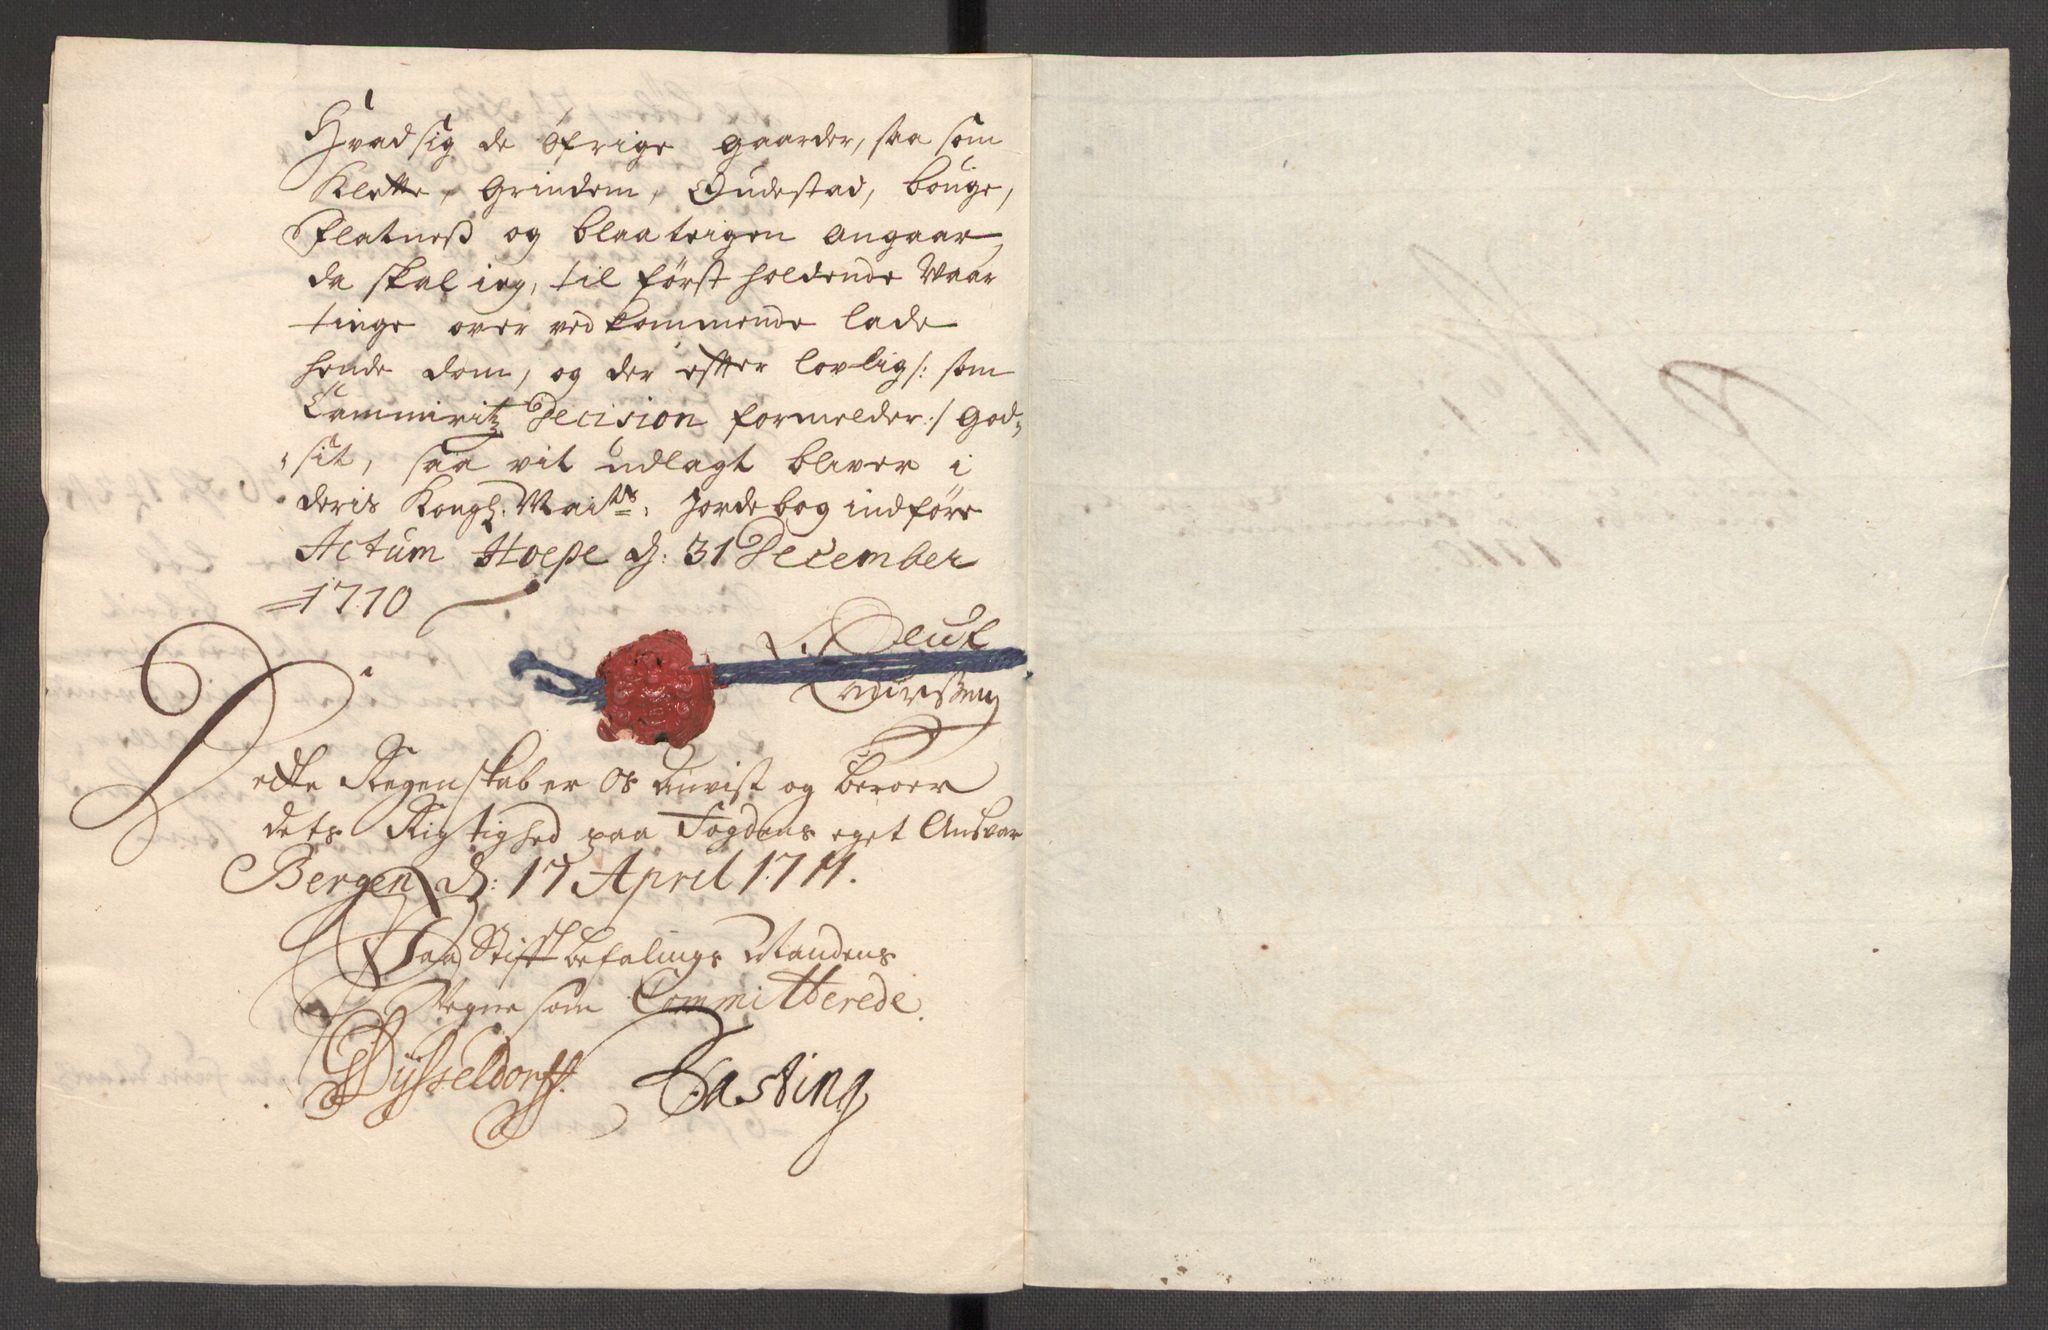 Hvad sig de öfrige gaarder, saa som
Klette, Grindem, Gudestad, bouge,
Flatneß og blaateigen angaar,
da skal ieg, til först holdende Vaar
tinge over vedkommende lade
hende dom, og der efter lovlig /: som
Cammiritz Decision formelder :/ God-
sit, saa vit udlagt bliver i
deris Kongl. Maits. Jordebog indföre
Actum Hoepe d: 31 December
1710
Oluf
Laurssen
Dette Regenskab er os anvist og beroer
dets Rigtighed paa Fogdens eget Ansvar
Bergen d: 17 April 1711.
Paa Stiftbefalings Mandens
Vegne som Committerede.
Düsseldorff. Fasting